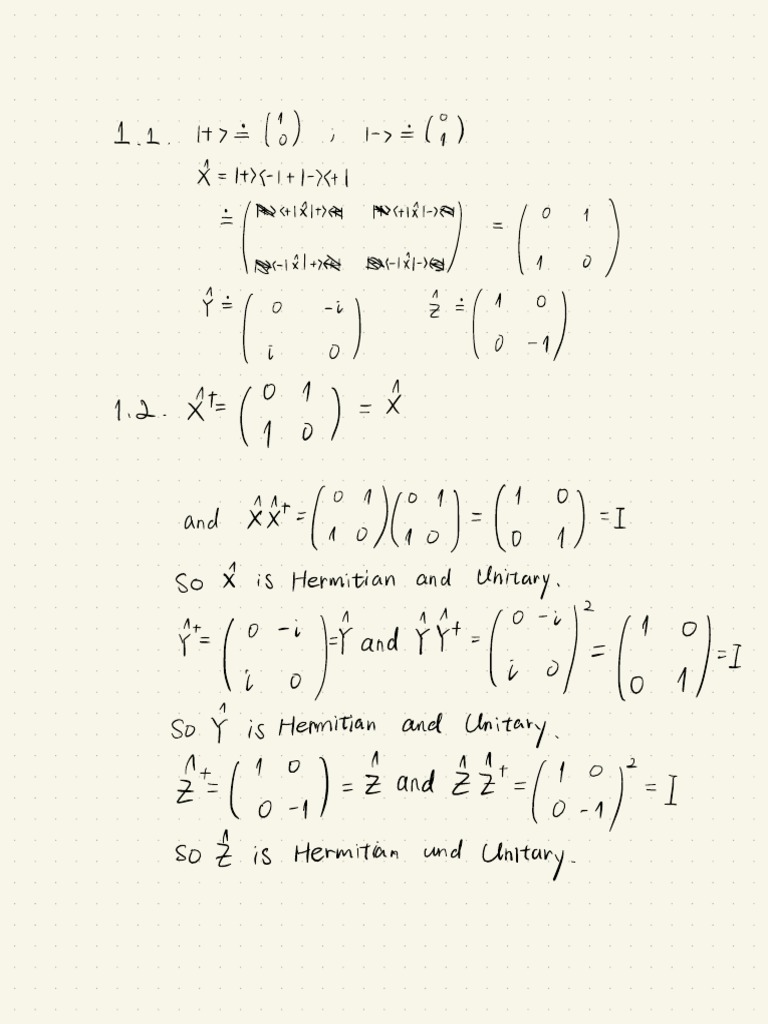 1.1. |+> ≐ (1 0) ; |-> ≐ (0 1)
X̂ = |+><-| + |-><+|
≐ (<+|X̂|+> <+|X̂|-> <-|X̂|+> <-|X̂|->) = (0 1 1 0)
Ŷ ≐ (0 -i i 0) Ẑ ≐ (1 0 0 -1)
1.2. X̂† = (0 1 1 0) = X̂
and X̂X̂† = (0 1 1 0)(0 1 1 0) = (1 0 0 1) = I
So X̂ is Hermitian and Unitary.
Ŷ† = (0 -i i 0) = Ŷ and ŶŶ† = (0 -i i 0)² = (1 0 0 1) = I
So Ŷ is Hermitian and Unitary.
Ẑ† = (1 0 0 -1) = Ẑ and ẐẐ† = (1 0 0 -1)² = I
So Ẑ is Hermitian und Unitary.